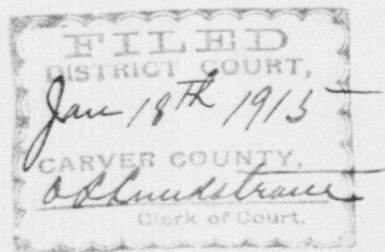 FILED
DISTRICT COURT,
Jan 18th 1915
CARVER COUNTY,
Clerk of Court.